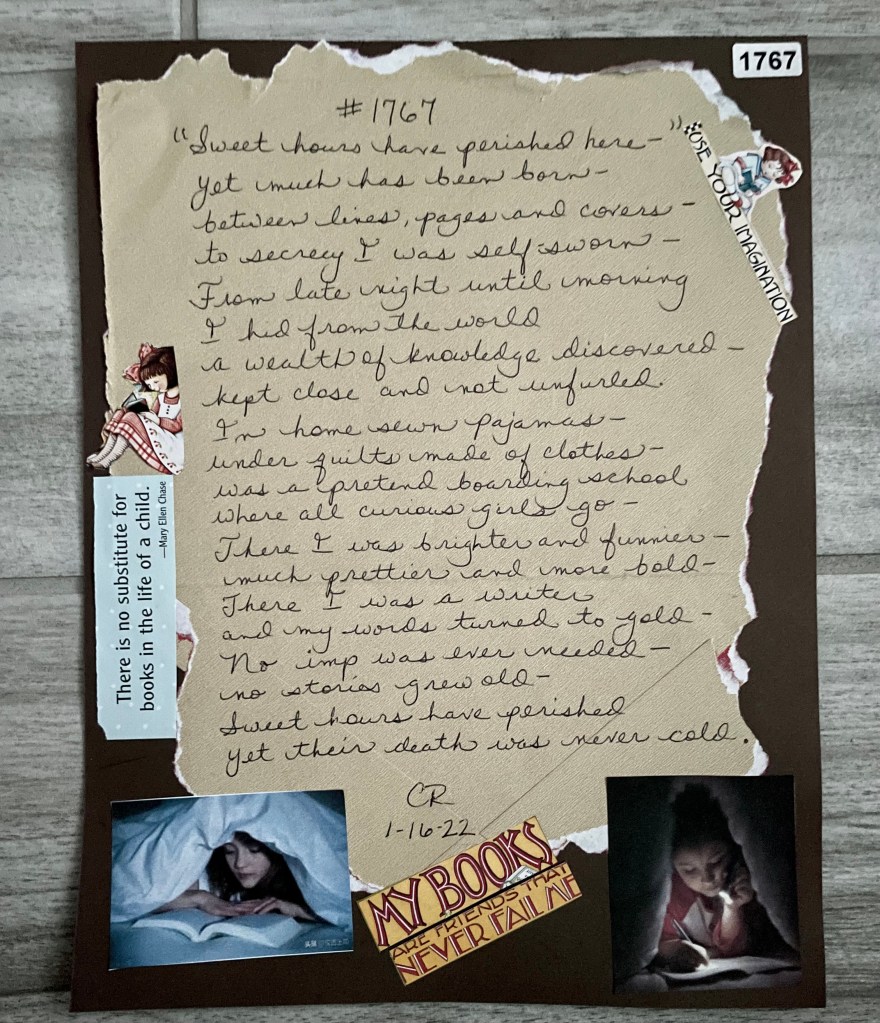 1767
#1767
"Sweet hours have perished here–"
yet much has been born–
between lines, pages and covers–
to secrecy I was self-sworn–
From late night until morning
I hid from the world
a wealth of knowledge discovered–
kept close and not unfurled.
In home sewn pajamas–
under quilts made of clothes–
was a pretend boarding school
where all curious girls go–
There I was brighter and funnier–
much prettier and more bold–
There I was a writer
and my words turned to gold–
No imp was ever needed–
no stories grew old–
Sweet hours have perished
yet their death was never cold.
CR
1-16-22
USE YOUR IMAGINATION
There is no substitute for
books in the life of a child.
—Mary Ellen Chase
MY BOOKS
ARE FRIENDS THAT
NEVER FAIL ME